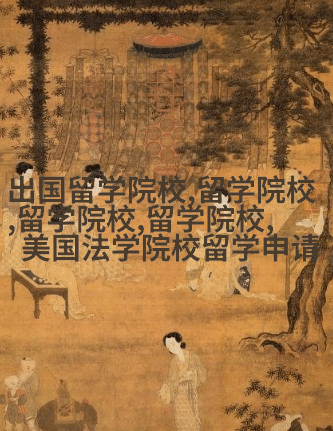 出国留学院校,留学院校
,留学院校,留学院校,
美国法学院校留学申请